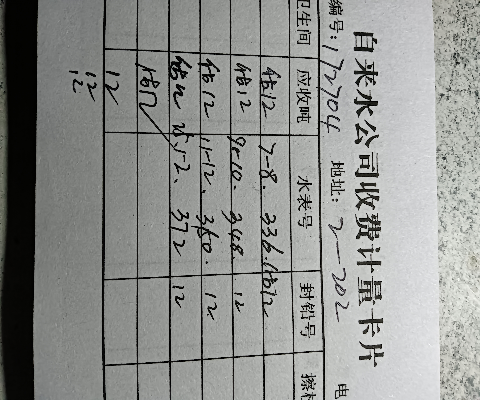 自来水公司收费计量卡片
编号:172704 地址: 2—202 电
卫生间 应收吨 水表号 封铅号 擦
估12 7-8. 336. 估12
估12 9-10. 348. 12
估12 11-12. 360. 12
估12 1-2. 372 12
估12
12
12
12